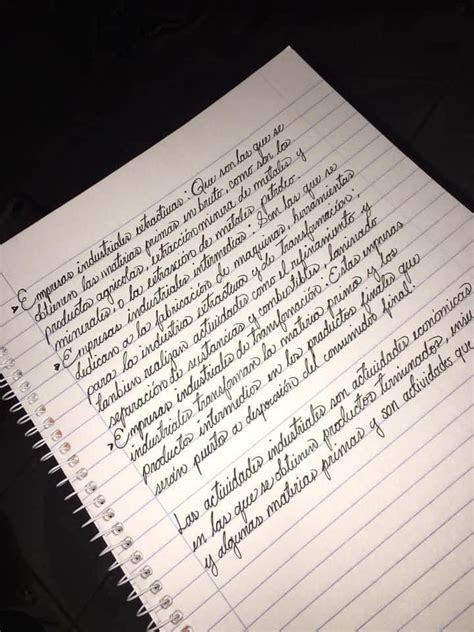 ➤ Empresas industriales extractivas: Que son las que se
obtienen las materias primas en bruto, como son los
productos agricolas, extracción minera de metales y
minerales o la extrasión de metales petroleo.
➤ Empresas industriales intermedias: Son las que se
dedican a la fabricación de maquinas, herramientas
para la industria extractiva y de transformación:
tambien realizan actividades como el refinamiento y
separación de sustancias y combustibles, laminado
➤ Empresas industiales de Transformación: Estas empresas
industriales transforman la materia prima y los
productos intermedios en los productos finales que
serán puesto a disposoción del consumidor final.
Las actividades industriales son actividades economicas
en las que se obtienen productos terminados, ensu
y algunas matrias primas y son actividades que